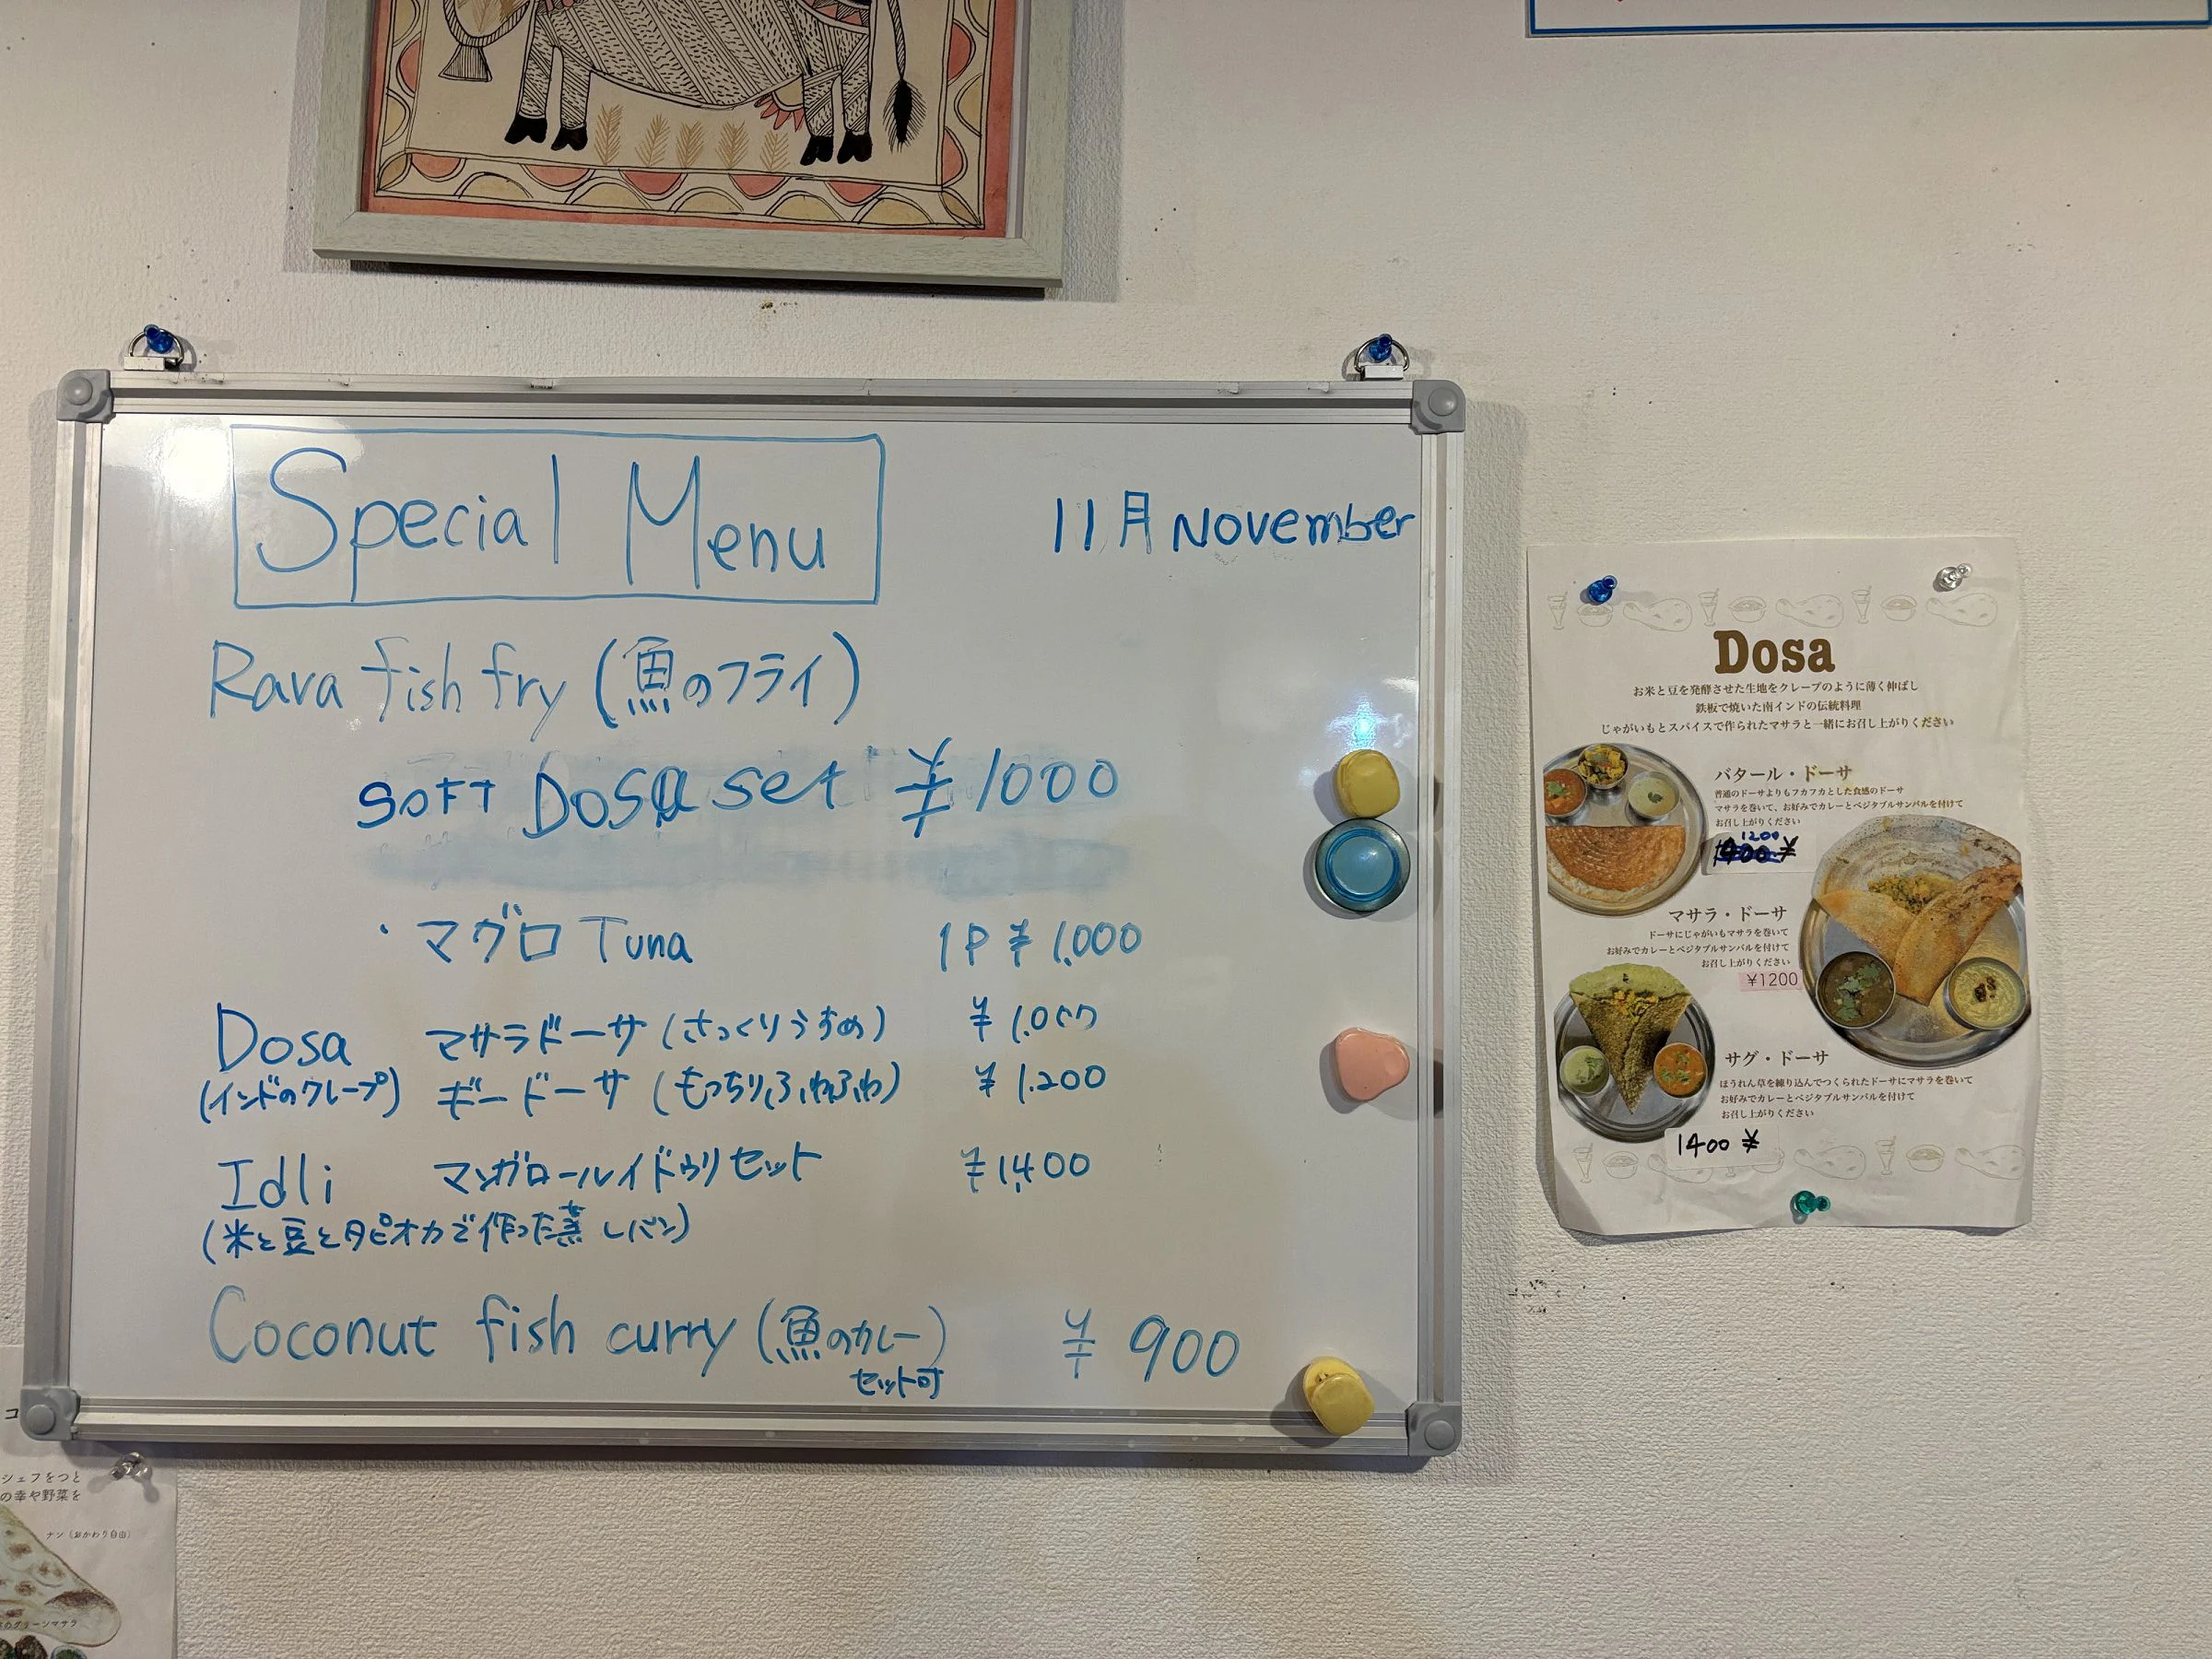 Special Menu
11月 November
Rava fish fry (魚のフライ)
SOFT Dosa set ¥1000
・マグロ Tuna 1P ¥1,000
Dosa マサラドーサ (さっくりうすめ) ¥1.000
(インドのクレープ) ギードーサ (もっちりふわふわ) ¥1.200
Idli マンガロールイドゥリセット ¥1,400
(米と豆とタピオカで作った蒸しパン)
Coconut fish curry (魚のカレー) ¥900
セット可
Dosa
お米と豆を発酵させた生地をクレープのように薄く伸ばし
鉄板で焼いた南インドの伝統料理
じゃがいもとスパイスで作られたマサラと一緒にお召し上がりください
バタール・ドーサ
普通のドーサよりもフカフカとした食感のドーサ
マサラを巻いて、お好みでカレーとベジタブルサンバルを付けて
お召し上がりください
1200
¥
マサラ・ドーサ
ドーサにじゃがいもマサラを巻いて
お好みでカレーとベジタブルサンバルを付けて
お召し上がりください
¥1200
サグ・ドーサ
ほうれん草を練り込んでつくられたドーサにマサラを巻いて
お好みでカレーとベジタブルサンバルを付けて
お召し上がりください
1400 ¥
コ
シェフをつと
の幸や野菜を
ナン（おかわり自由）
グリーンマサラ